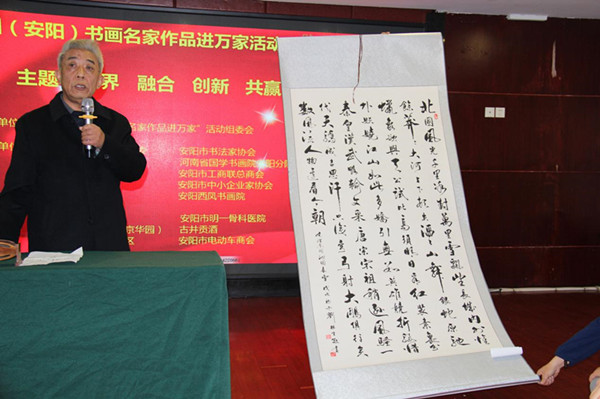 （安阳）书画名家作品进万家活动
主题 界 融合 创新 共赢
单位 名家作品进万家”活动组委会
安阳市书法家协会
河南省国学书画院 阳分
安阳市工商联总商会
安阳市中小企业家协会
安阳西风书画院
安阳市明一骨科医院
京华园） 古井贡酒
区 安阳市电动车商会
北國風光千里冰封萬里雪飄望長城内外惟
餘莽莽大河上下頓失滔滔山舞銀蛇原馳
蠟象欲與天公試比高須晴日看紅裝素裹分
外妖嬈江山如此多嬌引無數英雄競折腰惜
秦皇漢武略輸文采唐宗宋祖稍遜風騷一
代天驕成吉思汗只識彎弓射大雕俱往矣
數風流人物還看今朝